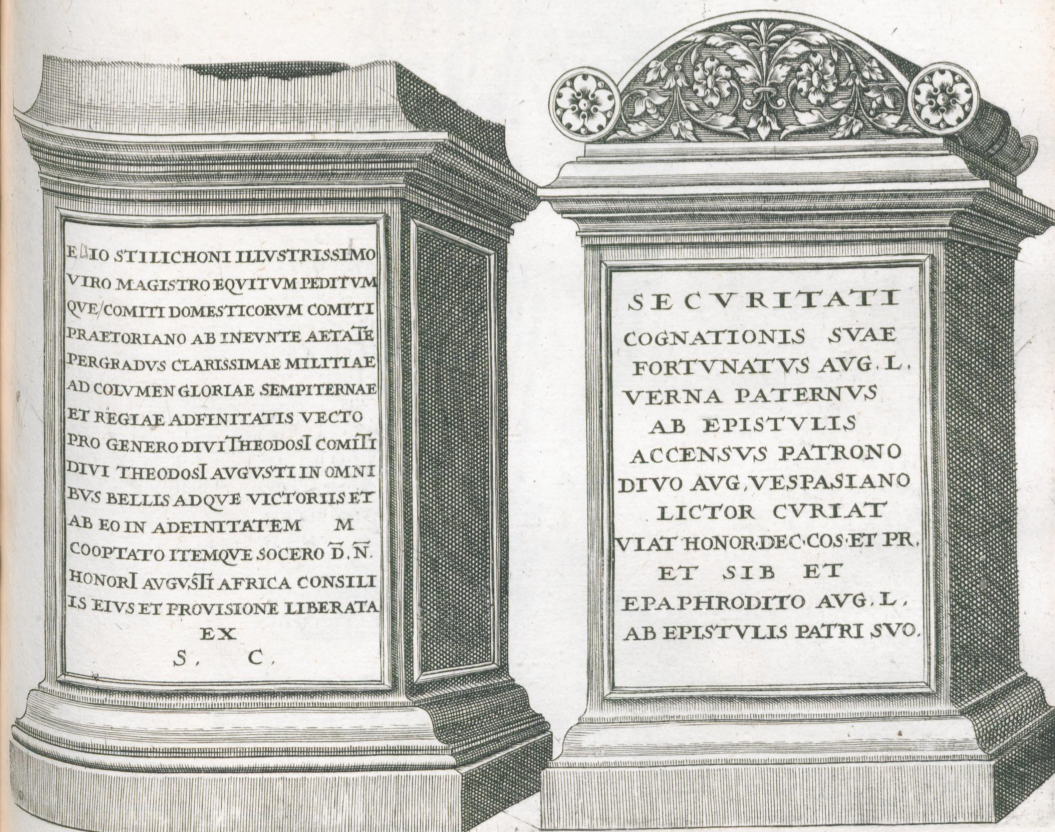 STILICHONI ILLVSTRISSIMO
VIRO MAGISTRO EQVITVM PEDITVM
QVE/COMITI DOMESTICORVM COMITI
PRAETORIANO AB INEVNTE AETATE
PERGRADVS CLARISSIMAE MILITIAE
AD COLVMEN GLORIAE SEMPITERNAE
ET REGIAE ADFINITATIS VECTO
PRO GENERO DIVI THEODOSI COMITI
DIVI THEODOSI AVGVSTI IN OMNI
BVS BELLIS ADQVE VICTORIIS ET
AB EO IN ADEINITATEM M
COOPTATO ITEMQVE SOCERO D̅. N̅.
HONORI AVGVSTI AFRICA CONSILI
IS EIVS ET PROVISIONE LIBERATA
EX
S. C.
SECVRITATI
COGNATIONIS SVAE
FORTVNATVS AVG. L.
VERNA PATERNVS
AB EPISTVLIS
ACCENSVS PATRONO
DIVO AVG, VESPASIANO
LICTOR CVRIAT
VIAT HONOR·DEC·COS·ET PR.
ET SIB ET
EPAPHRODITO AVG. L.
AB EPISTVLIS PATRI SVO.